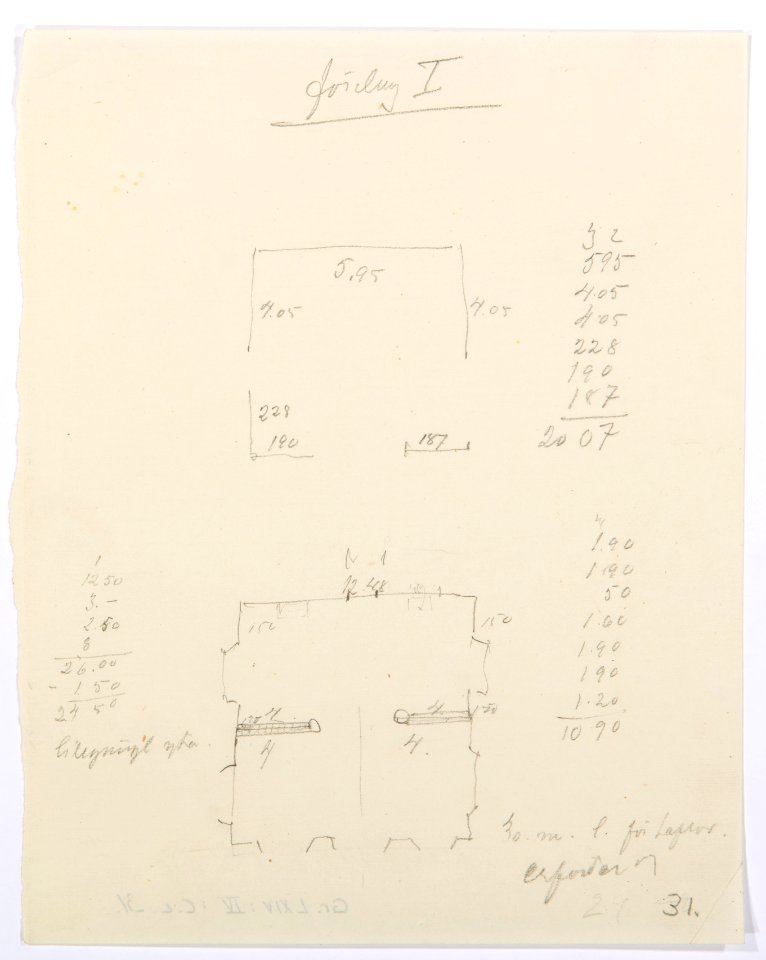 förslag I
3 2
595
4.05
4.05
228
190
187
2007
5.95
4.05
4.05
228
190
187
1
1250
3.-
2.50
8
26.00
- 1.50
24 50
12.48
150
150
4
4
150
4
4.
1.90
1.90
50
1.60
1.90
190
1.20
10 90
30. m. l. för tavlor.
erfordern
31.
Gr. LXIV : IV : C. c. 31.